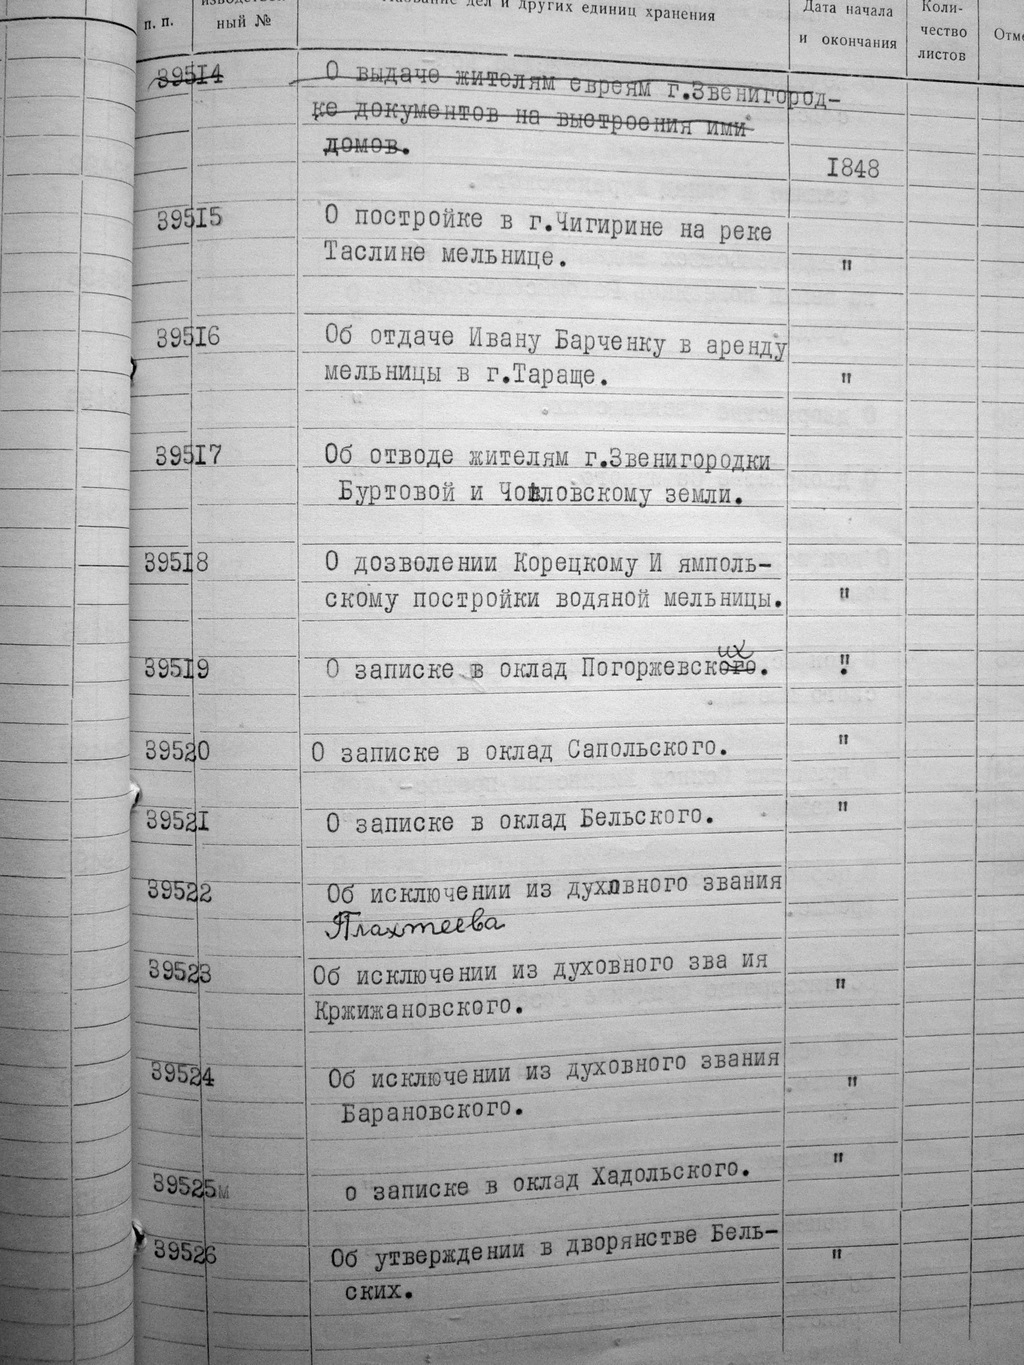 п. п.
ный №
дел и других единиц хранения
Дата начала
и окончания
Коли-
чество
листов
39514
О выдаче жителям евреям г.Звенигород-
ке документов на выстроения ими
домов.
1848
39515
О постройке в г.Чигирине на реке
Таслине мельнице.
"
39516
Об отдаче Ивану Барченку в аренду
мельницы в г.Тараще.
"
39517
Об отводе жителям г.Звенигородки
Буртовой и земли.
39518
О дозволении Корецкому И ямполь-
скому постройки водяной мельницы.
"
39519
их
О записке в оклад Погоржевского.
"
39520
О записке в оклад Сапольского.
"
39521
О записке в оклад Бельского.
"
39522
Об исключении из духовного звания
Плахтеева
39523
Об исключении из духовного зва ия
Кржижановского.
"
39524
Об исключении из духовного звания
Барановского.
"
39525м
о записке в оклад Хадольского.
"
39526
Об утверждении в дворянстве Бель-
ских.
"